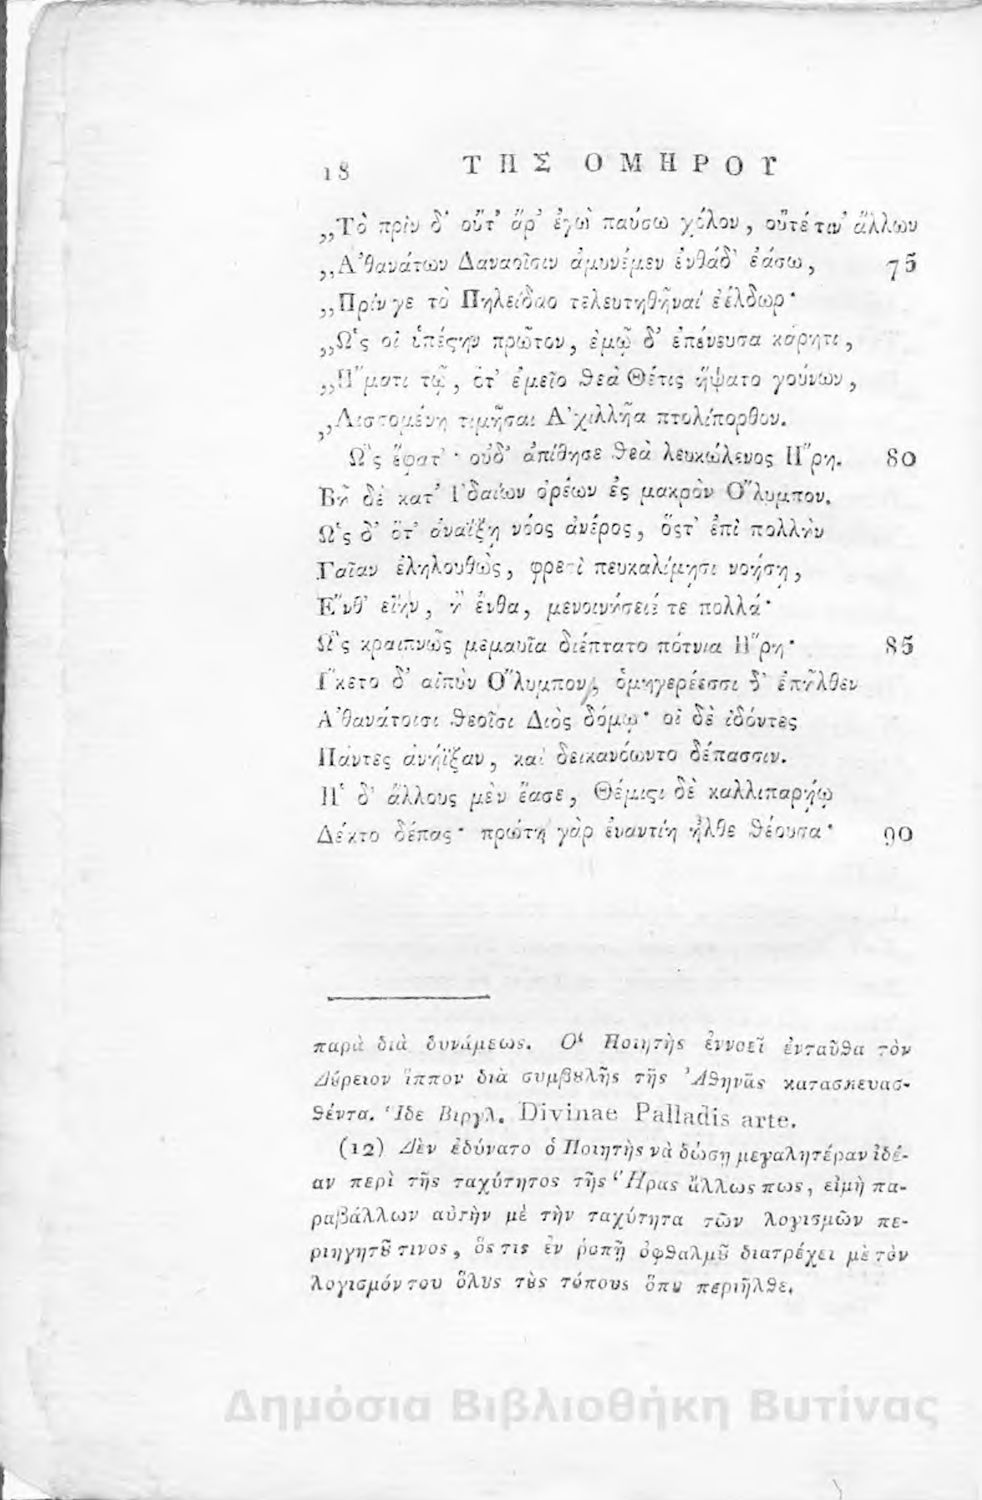 18 ΤΗΣ ΟΜΗΡΟΥ
„Τὸ πρὶν δ' οὔτ' ἄρ' ἐγὼ παύσω χόλον, οὔτέ τιν' ἄλλων
„Ἀθανάτων Δαναοῖσιν ἀμυνέμεν ἐνθάδ' ἐάσω, 75
„Πρίν γε τὸ Πηλείδαο τελευτηθῆναί ἐέλδωρ·
„Ὥς οἱ ὑπέϛην πρῶτον, ἐμῷ δ' ἐπένευσα κάρητι,
„Ἤματι τῷ, ὅτ' ἐμεῖο ϑεὰ Θέτις ἥψατο γούνων,
„Λισσομένη τιμῆσαι Ἀχιλλῆα πτολίπορθον.
Ὣς ἔφατ'· οὐδ' ἀπίθησε ϑεὰ λευκώλενος Ἥρη. 80
Βῆ δὲ κατ' Ἰδαίων ὀρέων ἐς μακρὸν Ὄλυμπον.
Ὡς δ' ὅτ' ἀναΐξῃ νόος ἀνέρος, ὅϛτ' ἐπὶ πολλὴν
Γαῖαν ἐληλουθὼς, φρεσὶ πευκαλίμῃσι νοήσῃ,
Ἔνθ' εἴην, ἢ ἔνθα, μενοινήσειέ τε πολλά·
Ὣς κραιπνῶς μεμαυῖα διέπτατο πότνια Ἥρη· 85
Ἵκετο δ' αἰπὺν Ὄλυμπον, ὁμηγερέεσσι δ' ἐπῆλθεν
Ἀθανάτοισι ϑεοῖσι Διὸς δόμῳ· οἱ δὲ ἰδόντες
Πάντες ἀνήϊξαν, καὶ δεικανόωντο δέπασσιν.
Ἡ δ' ἄλλους μὲν ἔασε, Θέμιϛι δὲ καλλιπαρήῳ
Δέκτο δέπας· πρώτη γὰρ ἐναντίη ἦλθε ϑέουσα· 90
παρὰ διὰ δυνάμεως. Ὁ Ποιητὴς ἐννοεῖ ἐνταῦϑα τὸν
Δύρειον ἵππον διὰ συμβȣλῆς τῆς Ἀϑηνᾶς κατασκευασ-
ϑέντα. Ἴδε Βιργλ. Divinae Palladis arte.
(12) Δὲν ἐδύνατο ὁ Ποιητὴς νὰ δώσῃ μεγαλητέραν ἰδέ-
αν περὶ τῆς ταχύτητος τῆς Ἥρας ἄλλως πως, εἰμὴ πα-
ραβάλλων αὐτὴν μὲ τὴν ταχύτητα τῶν λογισμῶν πε-
ριηγητȣ͂ τινος, ὅς τις ἐν ῥοπῇ ὀφϑαλμȣ͂ διατρέχει μὲ τὸν
λογισμόν του ὅλȣς τȣ̀ς τόπους ὅπȣ περιῆλϑε.
Δημόσια Βιβλιοθήκη Βυτίνας